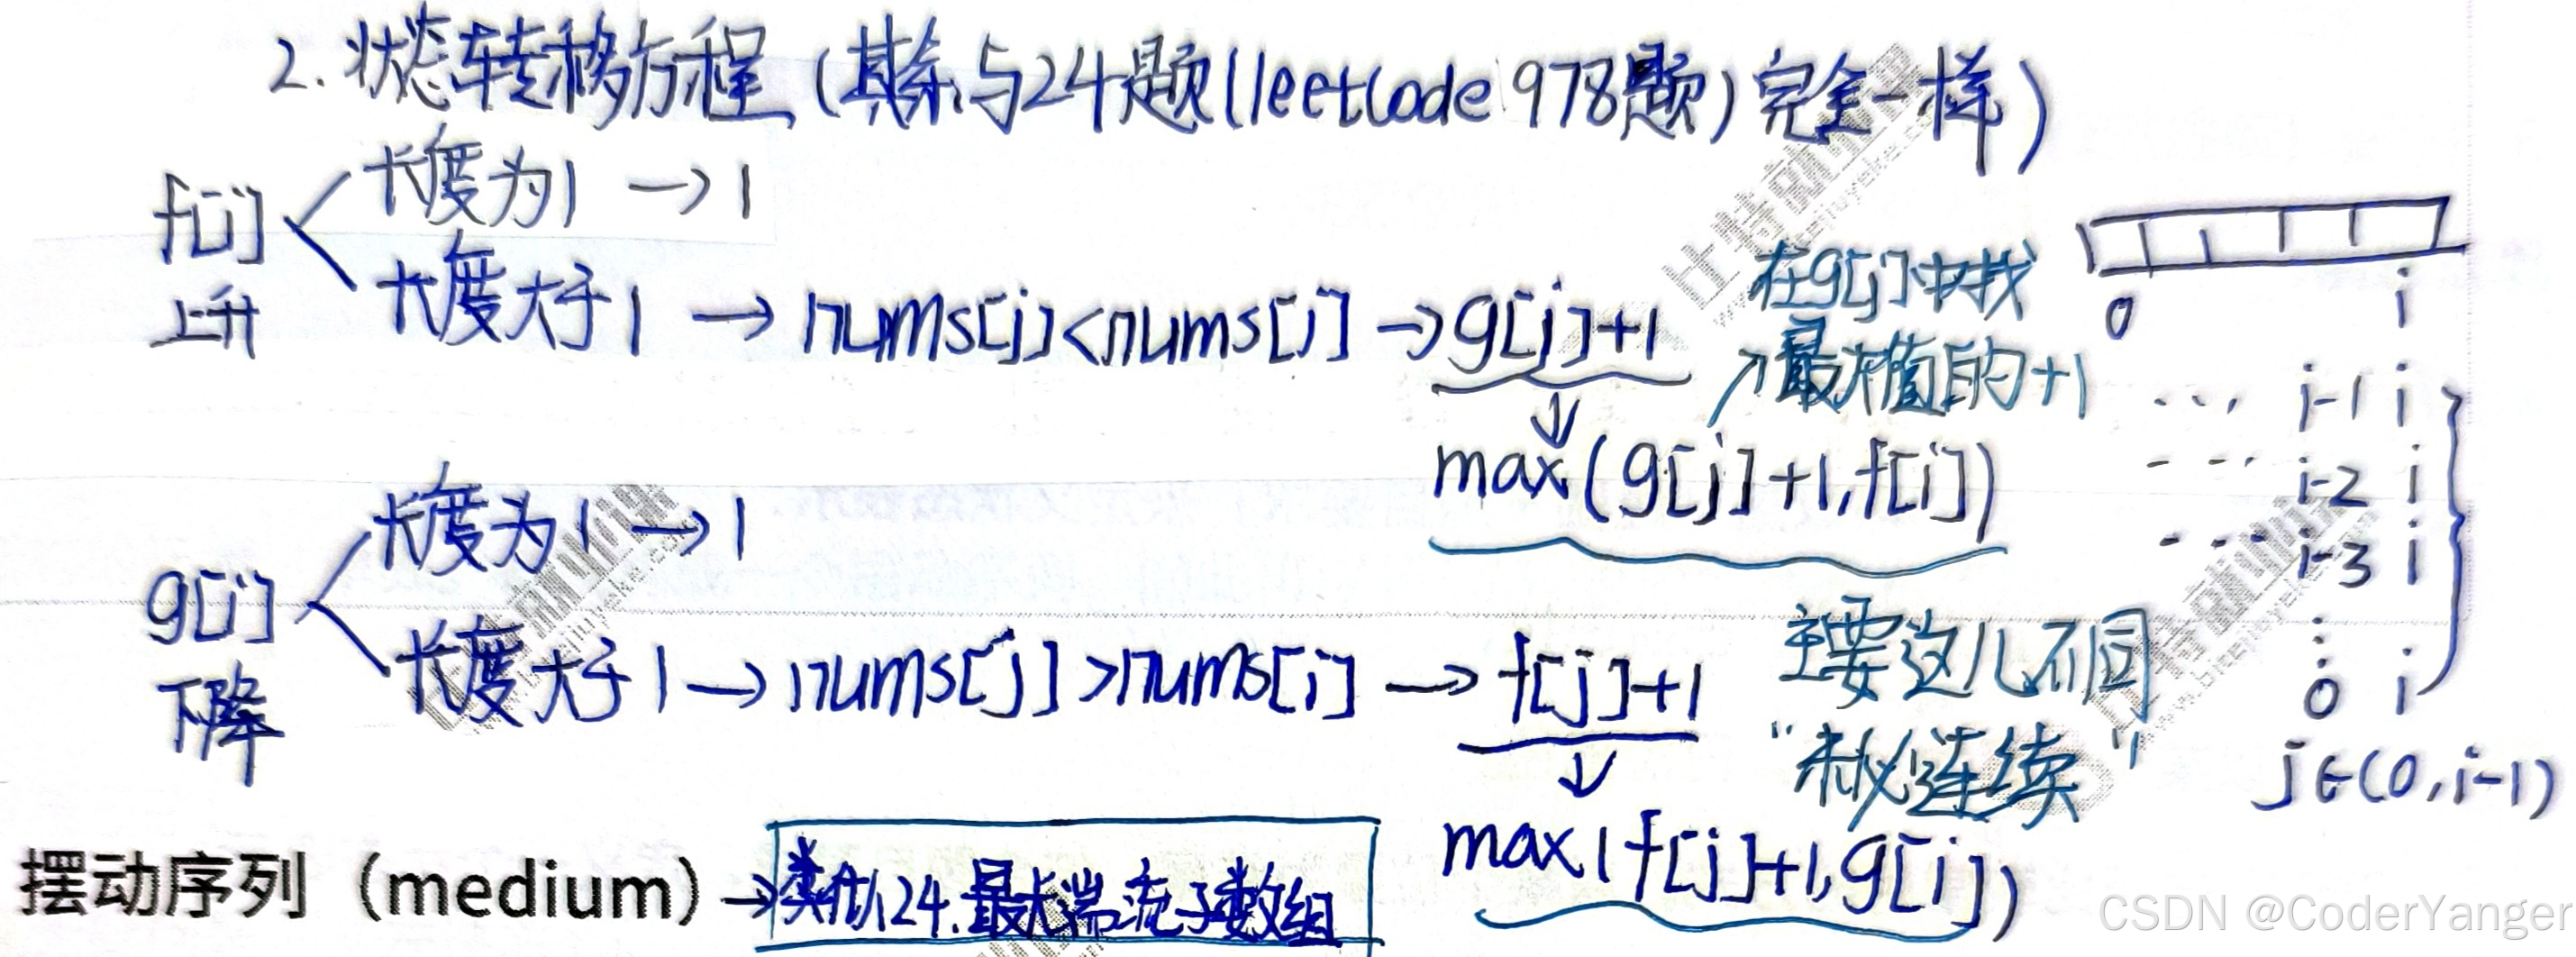 2.状态转移方程(其余与24题(leetcode 978题)完全一样)
f[i]
上升
长度为1 → 1
长度大于1 → nums[j]<nums[i] → g[j]+1
↓
max(g[j]+1,f[i])
在g[j]中找
↗最大值的+1
0 i
... i-1 i
... i-2 i
... i-3 i
⋮
0 i
j∈(0,i-1)
g[i]
下降
长度为1 → 1
长度大于1 → nums[j]>nums[i] → f[j]+1
↓
max(f[j]+1,g[i])
主要这儿不同
"未必连续"
摆动序列（medium）→ 类似24.最长湍流子数组
比特就业课
CSDN @CoderYanger